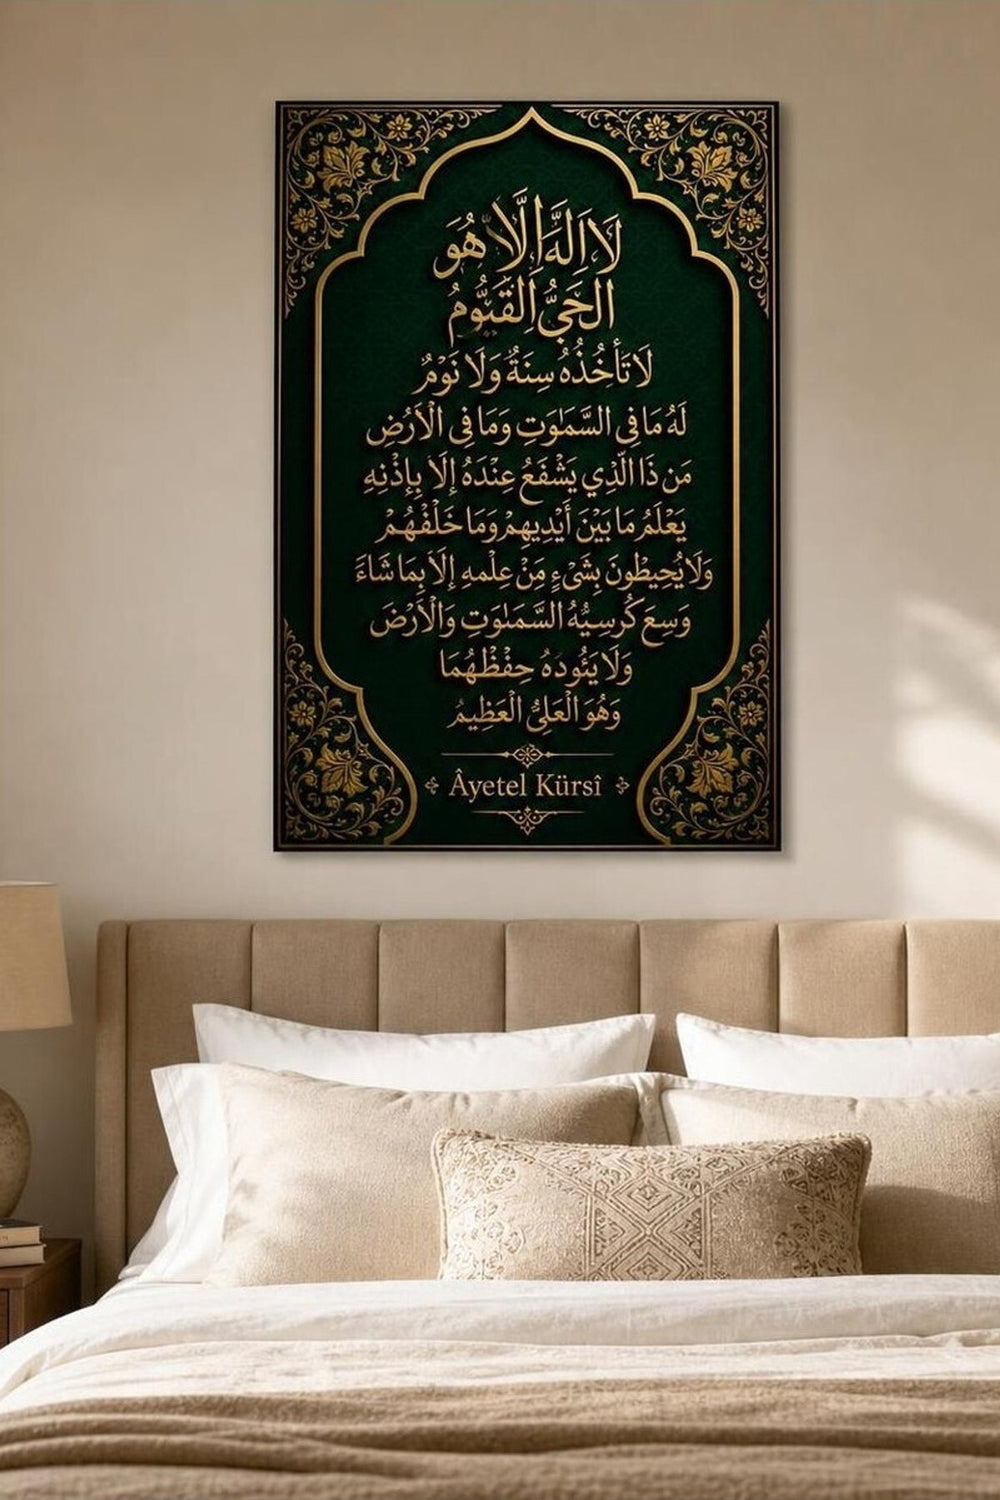 لَا اِلٰهَ اِلَّا هُوَ
الْحَيُّ الْقَيُّومُ
لَا تَأْخُذُهُ سِنَةٌ وَلَا نَوْمٌ
لَهُ مَا فِي السَّمٰوٰتِ وَمَا فِي الْاَرْضِ
مَن ذَا الَّذِي يَشْفَعُ عِنْدَهُ إِلَّا بِإِذْنِهِ
يَعْلَمُ مَا بَيْنَ أَيْدِيهِمْ وَمَا خَلْفَهُمْ
وَلَا يُحِيطُونَ بِشَيْءٍ مِنْ عِلْمِهِ إِلَّا بِمَا شَاءَ
وَسِعَ كُرْسِيُّهُ السَّمٰوٰتِ وَالْأَرْضَ
وَلَا يَئُودُهُ حِفْظُهُمَا
وَهُوَ الْعَلِيُّ الْعَظِيمُ
Âyetel Kürsî